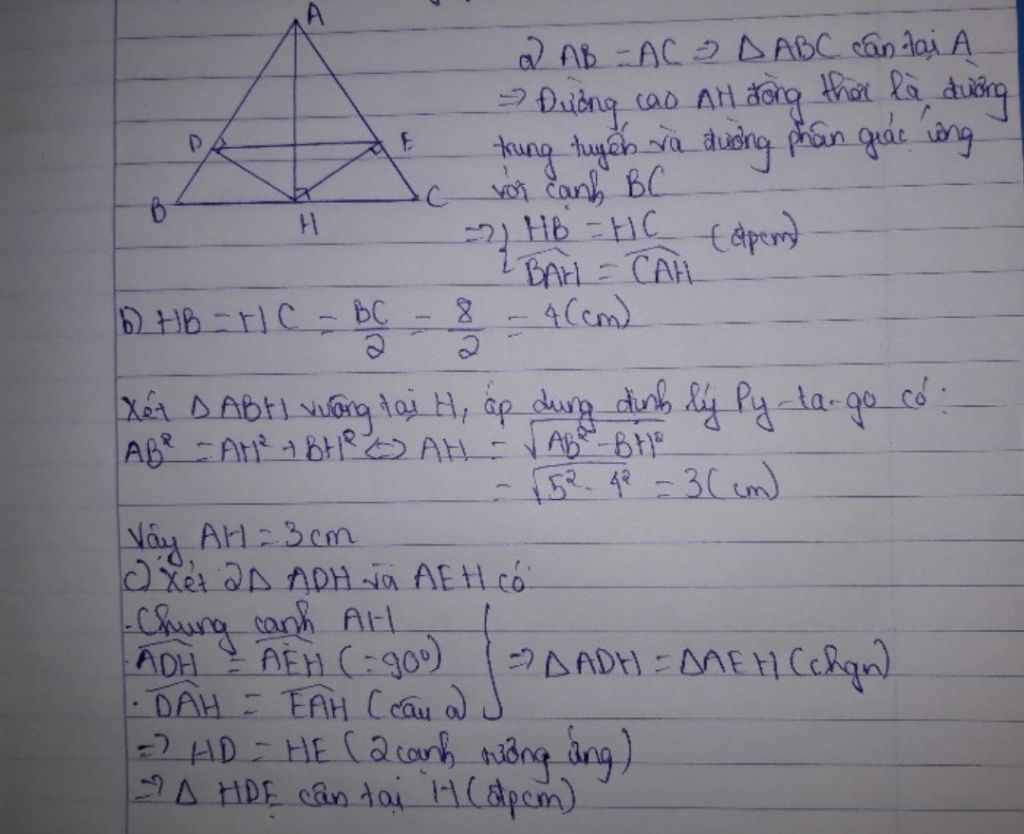 A
D
E
B
H
C
a) AB = AC => Δ ABC cân tại A
=> Đường cao AH đồng thời là đường
trung tuyến và đường phân giác ứng
với cạnh BC
=> { HB = HC (đpcm)
\widehat{BAH} = \widehat{CAH}
b) HB = HC = \frac{BC}{2} = \frac{8}{2} = 4(cm)
Xét Δ ABH vuông tại H, áp dụng định lý Py-ta-go có:
AB² = AH² + BH² <=> AH = \sqrt{AB² - BH²}
= \sqrt{5² - 4²} = 3(cm)
Vậy AH = 3cm
c) Xét 2Δ ADH và AEH có
- Chung cạnh AH
· \widehat{ADH} = \widehat{AEH} (=90°) } => Δ ADH = Δ AEH (chgn)
· \widehat{DAH} = \widehat{EAH} (câu a)
=> HD = HE (2 cạnh tương ứng)
=> Δ HDE cân tại H (đpcm)